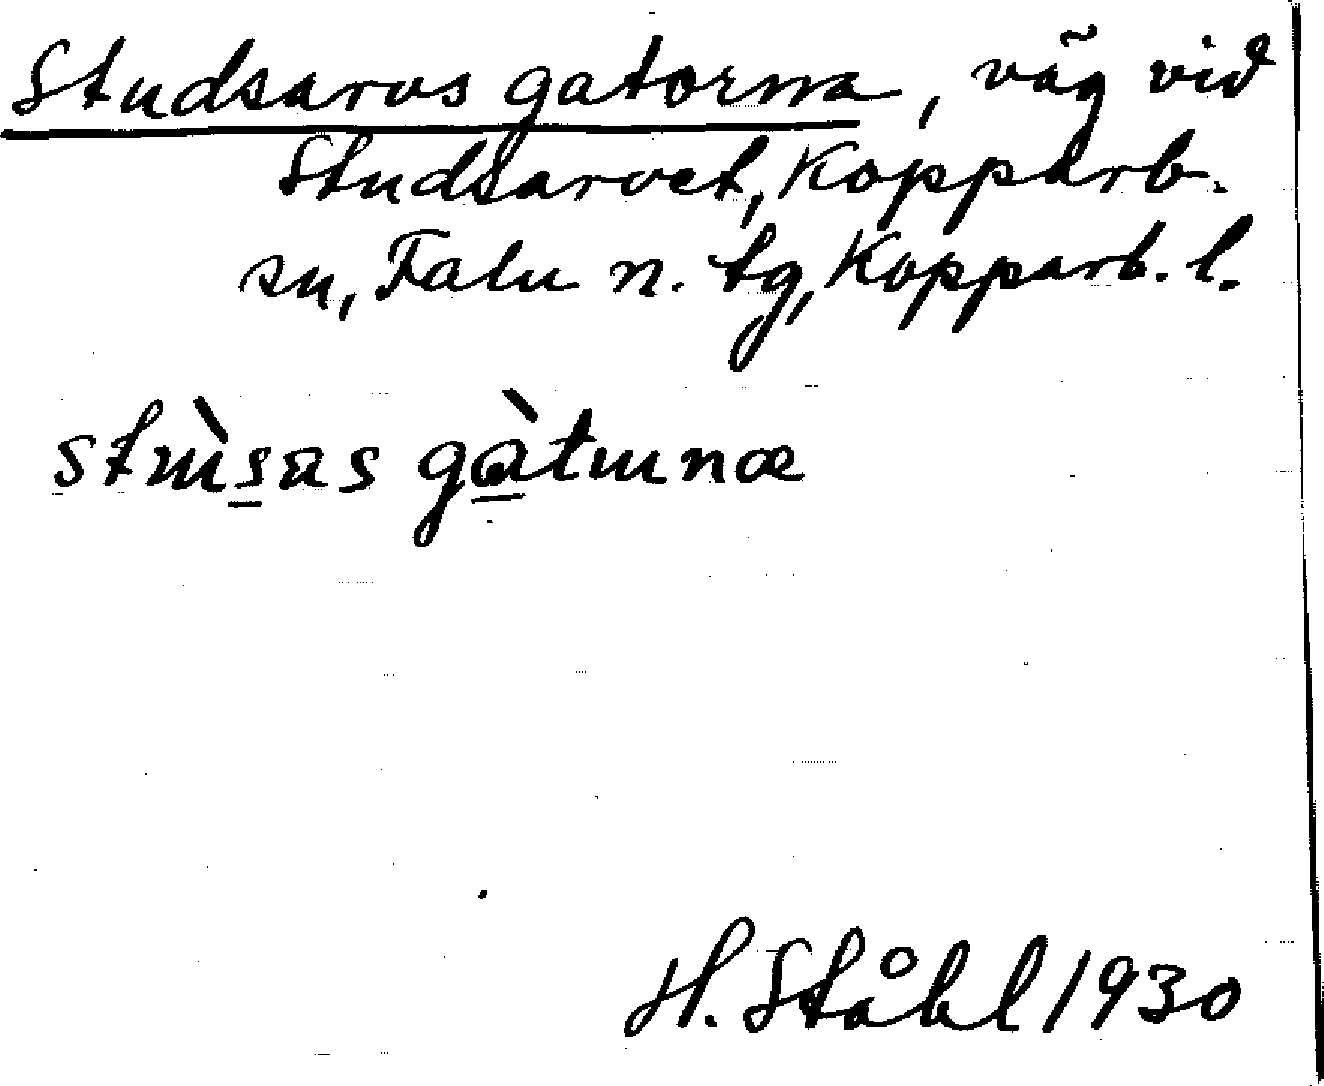 Studsarvs gatorna, väg vid
Studsarvet, Kopparb.
sn, Falu n. tg, Kopparb. l.
stɯ̀sas gàtɯnæ
H. Ståhl 1930